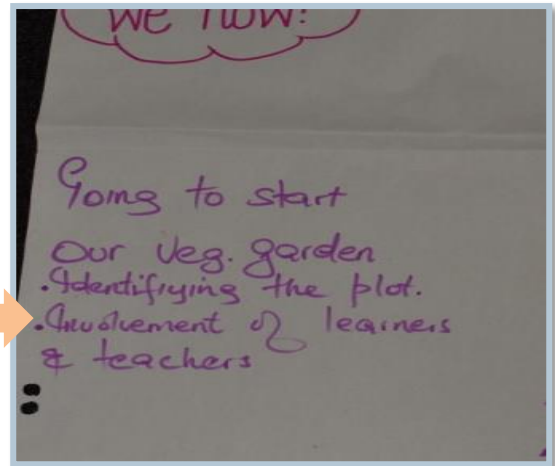 WE NOW?
Going to start
Our Veg. garden
. Identifiying the plot.
. Involvement of learners
& teachers